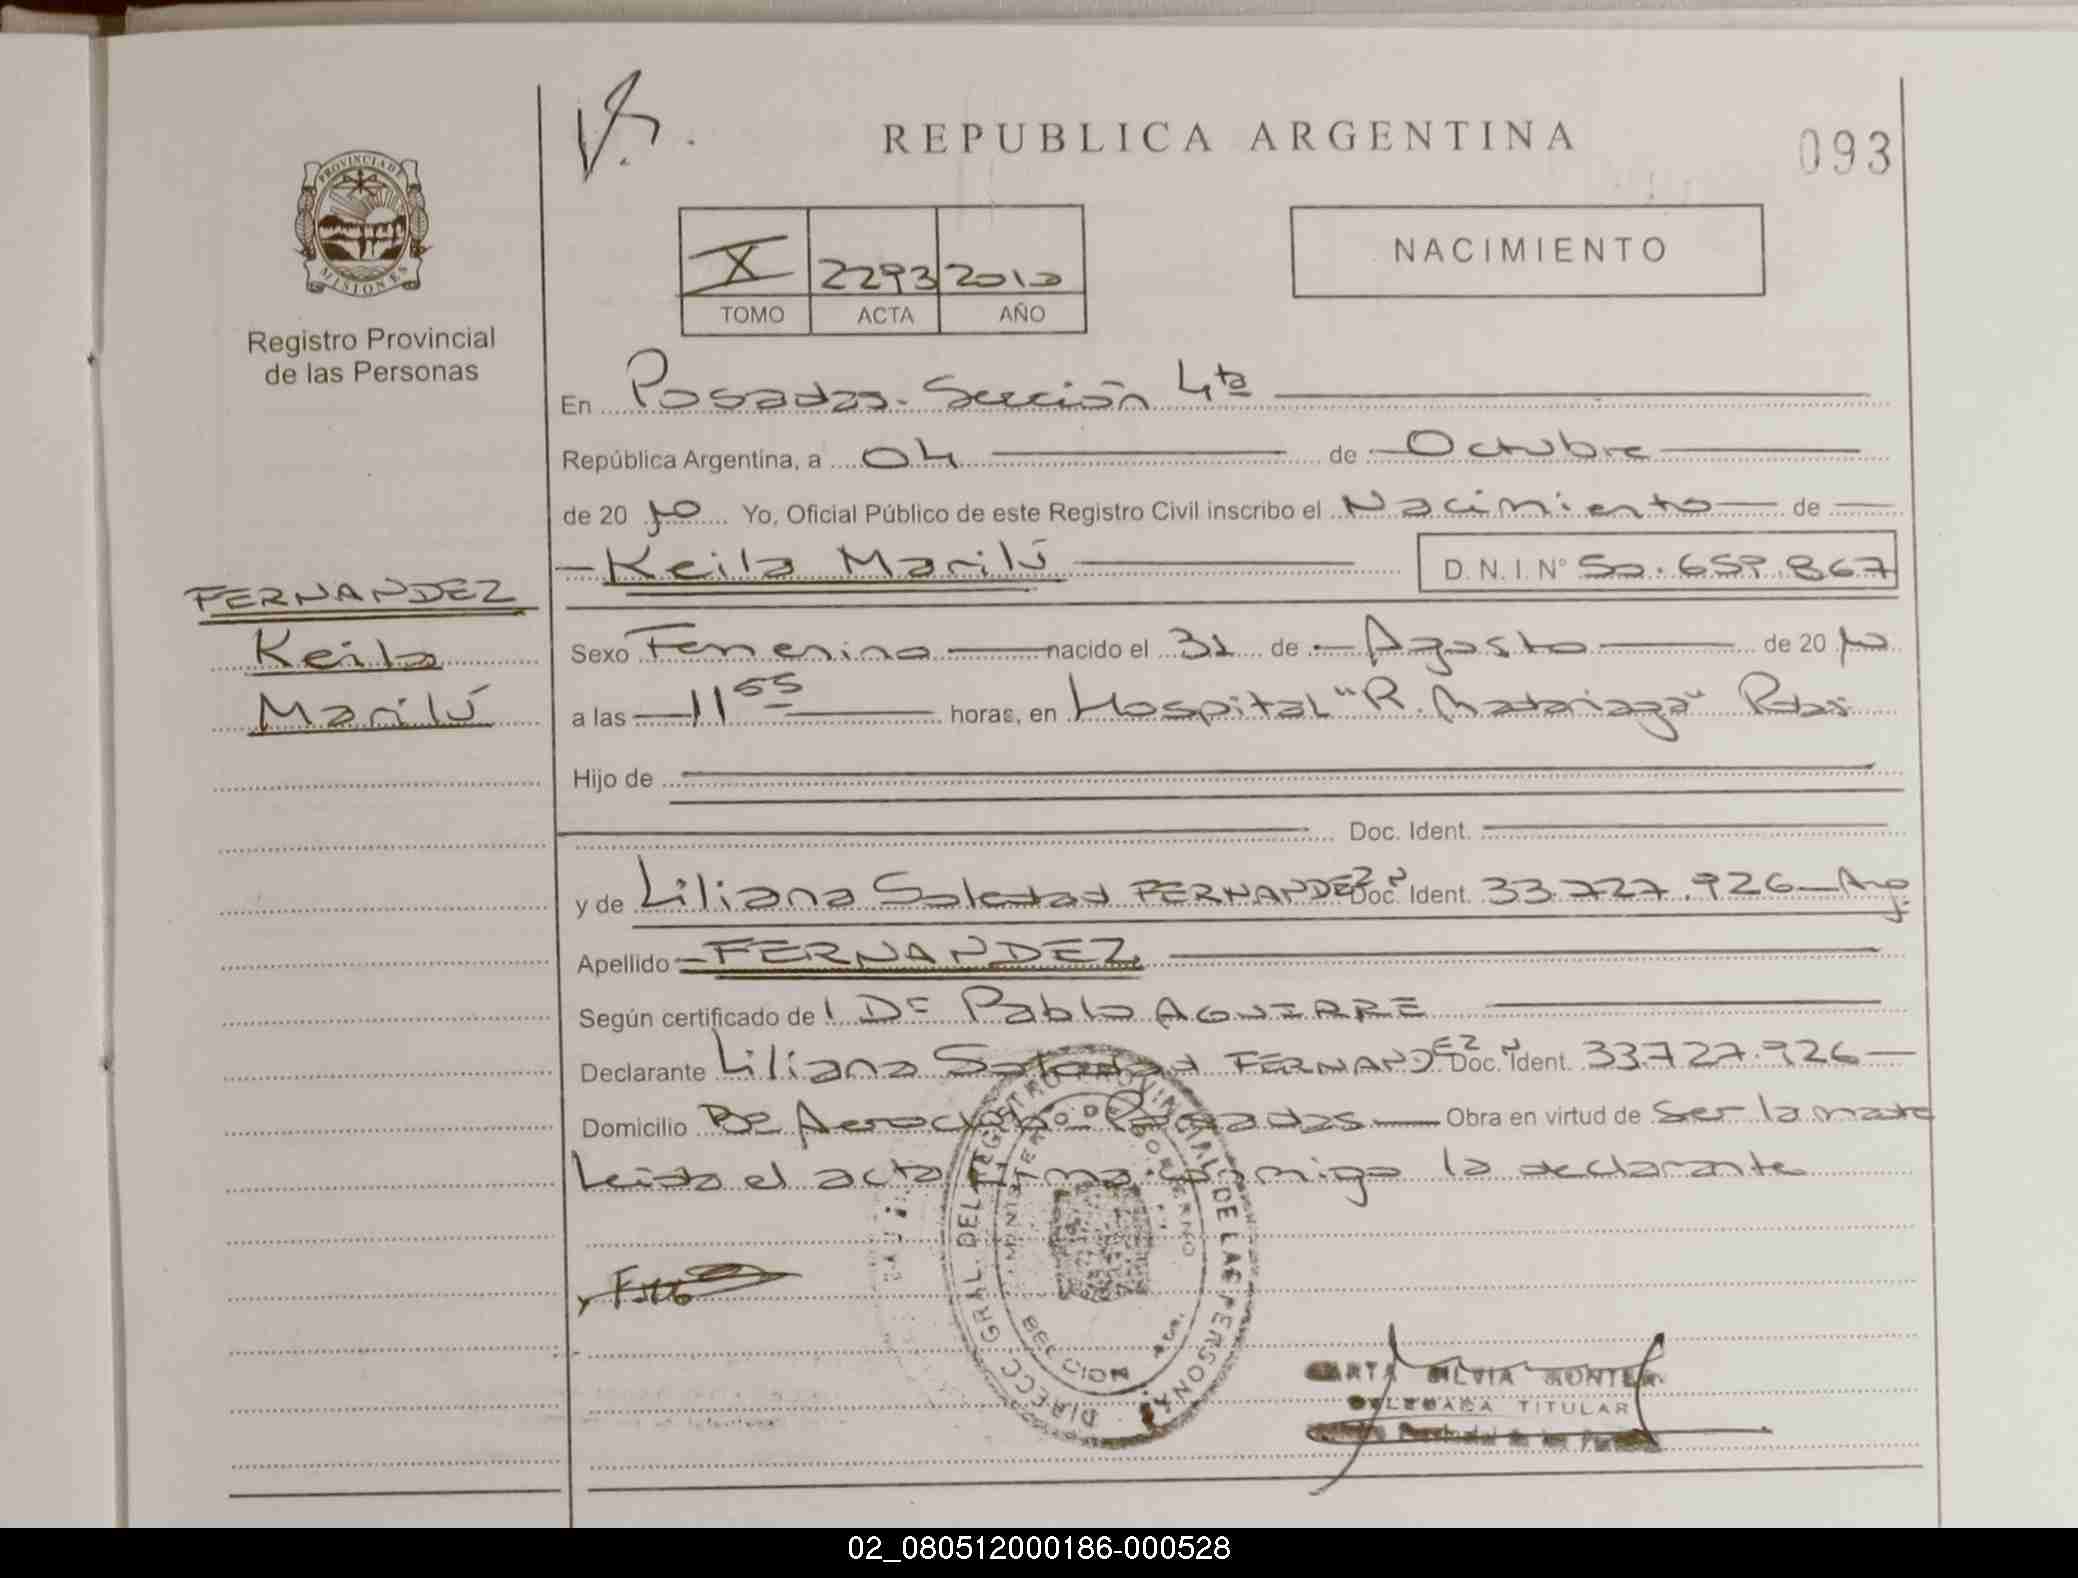 REPUBLICA ARGENTINA
093
PROVINCIA DE
MISIONES
Registro Provincial
de las Personas
X 2293 2010
TOMO ACTA AÑO
NACIMIENTO
En Posadas. Sección 4ta
República Argentina, a 04 de Octubre
de 20 10 Yo, Oficial Público de este Registro Civil inscribo el Nacimiento de
Keila Marilú D. N. I. N° 50.659.867
FERNANDEZ
Keila
Marilú
Sexo Femenino nacido el 31 de Agosto de 20 10
a las 11 55 horas, en Hospital "R. Madariaga" Pdas
Hijo de
Doc. Ident.
y de Liliana Soledad FERNANDEZ Doc. Ident. 33.727.926 - Arg.
Apellido FERNANDEZ
Según certificado de Dr Pablo AGUIRRE
Declarante Liliana Soledad FERNANDEZ Doc. Ident. 33.727.926
Domicilio Bº Aeroclub Posadas Obra en virtud de ser la madre
Leida el acta firma conmigo la declarante
DIRECC GRAL. DEL REGISTRO PROVINCIAL DE LAS PERSONAS
MINISTERIO DE GOBIERNO
SILVIA
DELEGADA TITULAR
Provincial de las
02_080512000186-000528